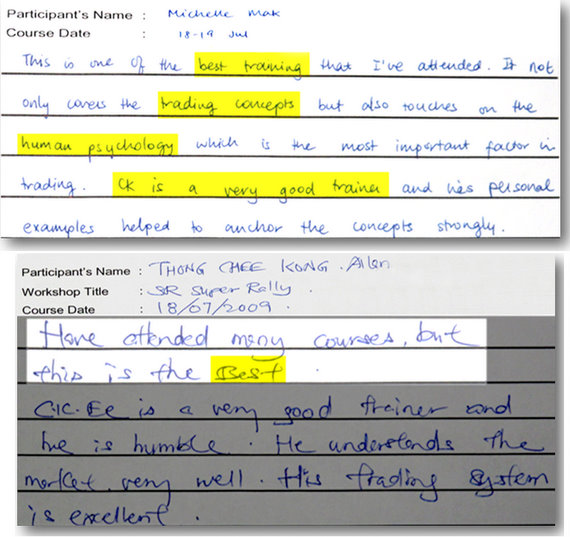 Participant's Name : Michelle Mak
Course Date : 18-19 Jul
This is one of the best training that I've attended. It not
only covers the trading concepts but also touches on the
human psychology which is the most important factor in
trading. CK is a very good trainer and his personal
examples helped to anchor the concepts strongly.
Participant's Name : THONG CHEE KONG. Allan
Workshop Title : SR Super Rally.
Course Date : 18/07/2009.
Have attended many courses, but
this is the Best.
C.K. Ee is a very good trainer and
he is humble. He understands the
market very well. His trading system
is excellent.